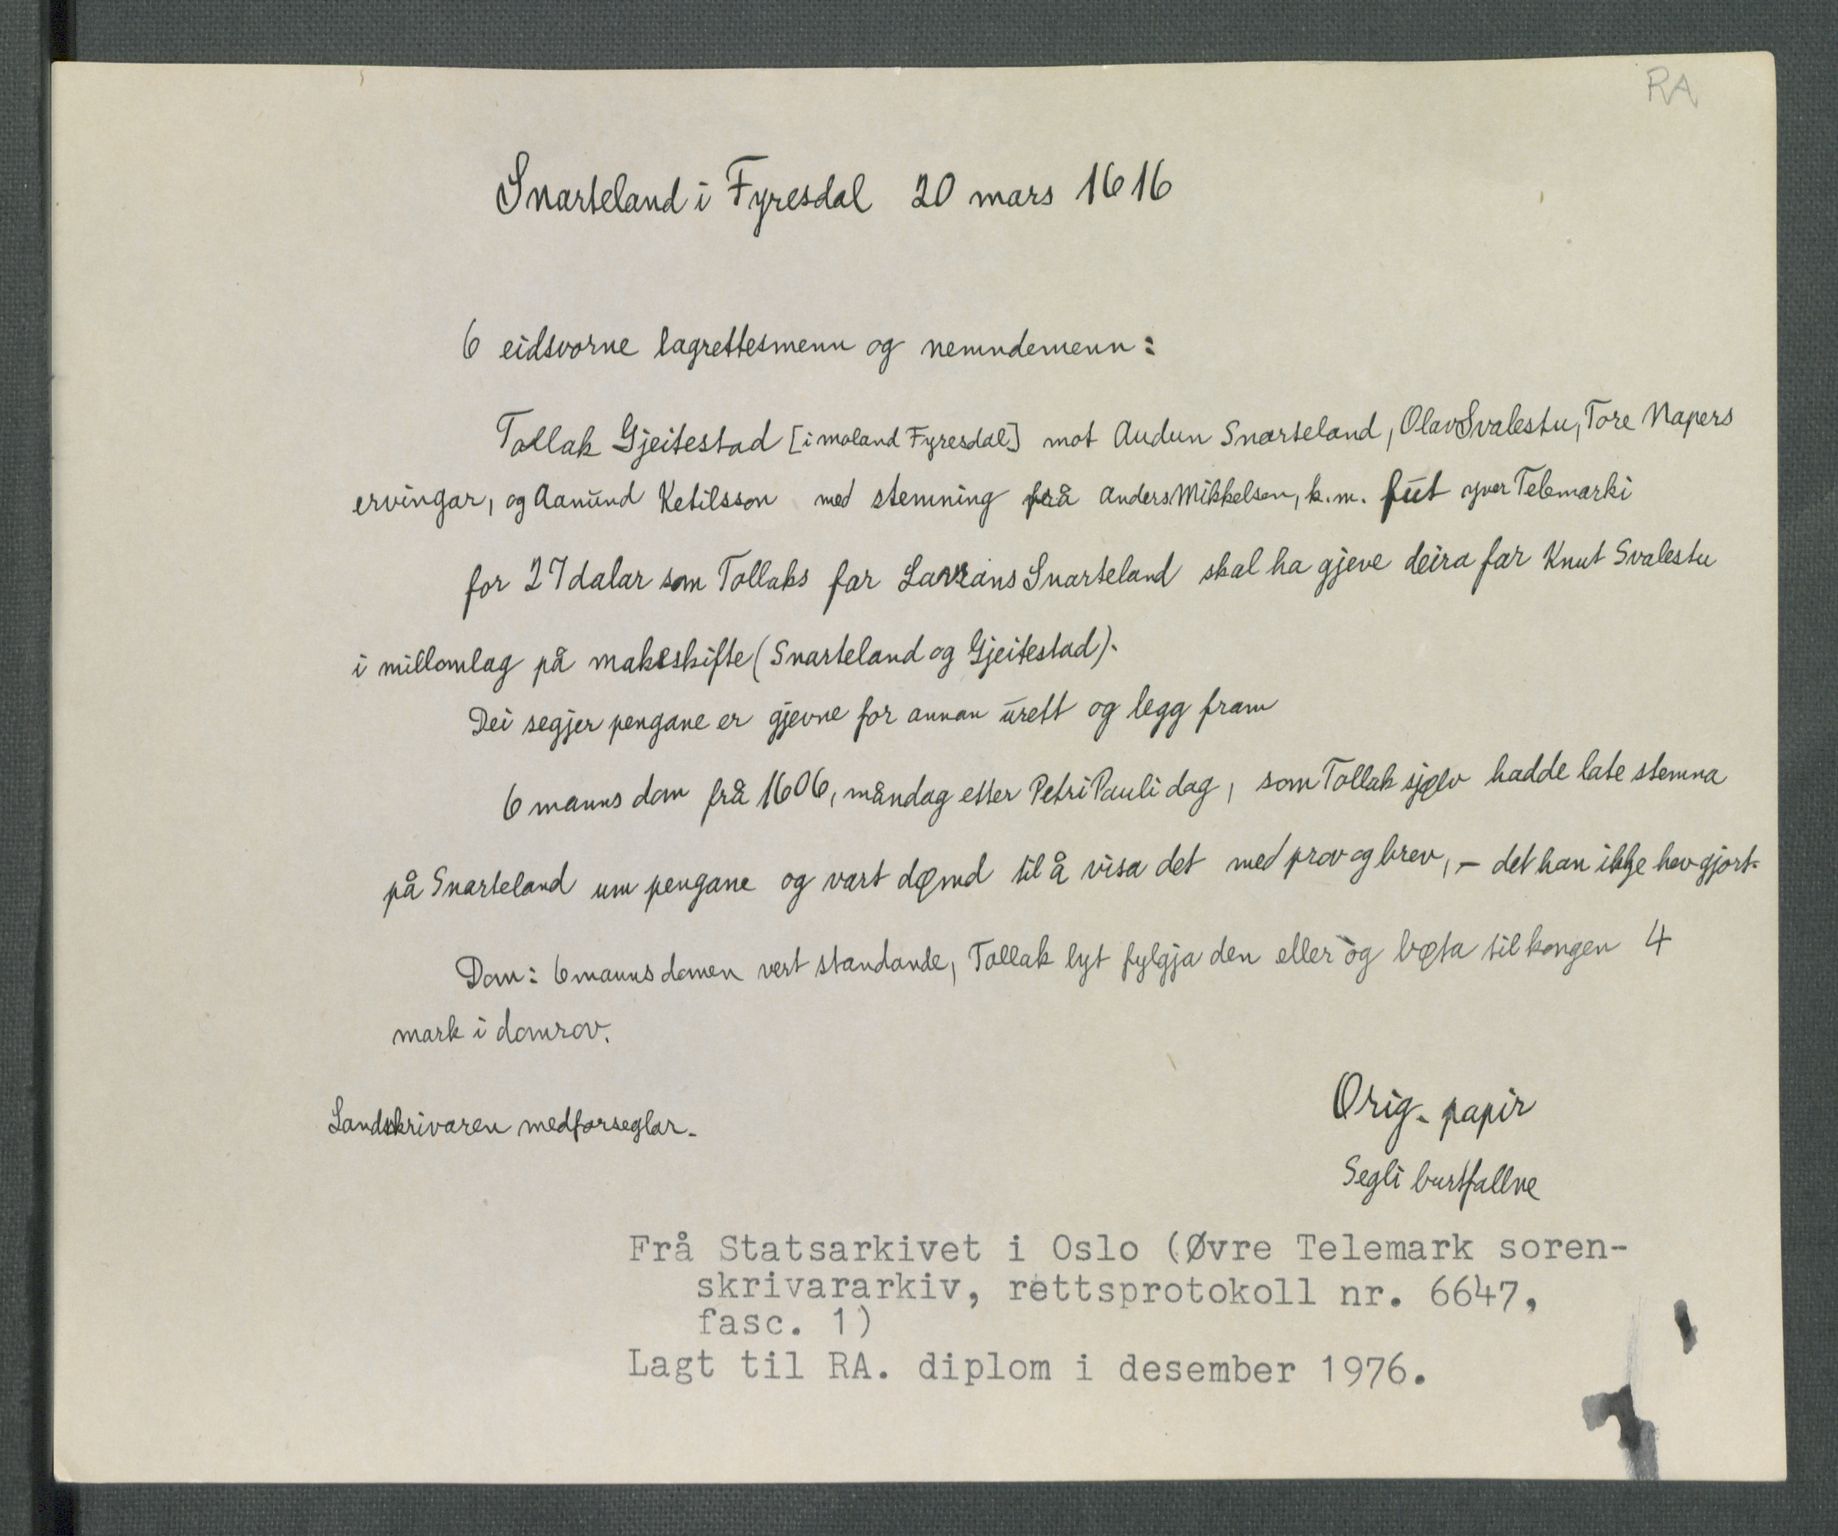 RA
Snarteland i Fyresdal 20 mars 1616
6 eidsvorne lagrettesmenn og nemndemenn:
Tollak Gjeitestad [i Moland Fyresdal] mot Audun Snarteland, Olav Svalestu, Tore Napers
ervingar, og Aanund Ketilsson med stemning frå Anders Mikkelsen, k.m. fut yver Telemarki
for 27 dalar som Tollaks far Lavrans Snarteland skal ha gjeve deira far Knut Svalestu
i millomlag på makeskifte (Snarteland og Gjeitestad).
Dei segjer pengane er gjevne for annan urett og legg fram
6 manns dom frå 1606, måndag etter Petri Pauli dag, som Tollak sjølv hadde late stemna
på Snarteland um pengane og vart dømd til å visa det med prov og brev, – det han ikkje hev gjort.
Dom: 6 manns domen vert standande, Tollak lyt fylgja den eller òg bøta til kongen 4
mark i domrov.
Landskrivaren medforseglar.
Orig. papir
Segli burtfallne
Frå Statsarkivet i Oslo (Øvre Telemark soren-
skrivararkiv, rettsprotokoll nr. 6647,
fasc. 1)
Lagt til RA. diplom i desember 1976.